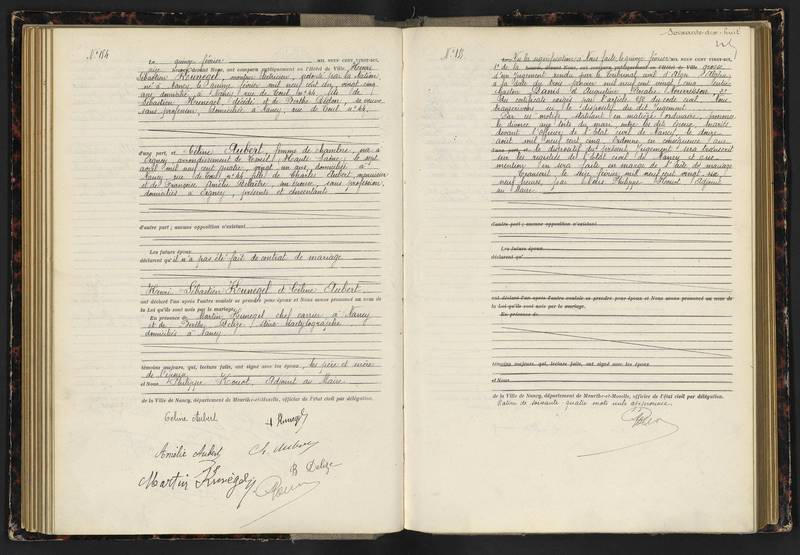 N° 154
Le quinze février MIL NEUF CENT VINGT-SIX,
devant Nous, ont comparu publiquement en l'Hôtel de Ville, Henri
Sébastien Kunegel, monteur électricien, pupille par la Nation,
né à Nancy le quinze février mil neuf cent six, vingt
ans, domicilié à Nancy, rue de Toul n° 44, fils de
Sébastien Kunegel, décédé, et de Berthe sa veuve
sans profession, domiciliée à Nancy, rue de Toul n° 44
d'une part
et Céline Aubert, femme de chambre, née à
arrondissement de Haute Saône, le sept
avril mil neuf cent quatre, vingt un ans, domiciliée à
Nancy rue de Toul n° 44, fille de Charles Aubert,
et de Françoise Amélie sans profession,
domiciliés à présents et consentants
d'autre part ; aucune opposition n'existant
Les futurs époux
déclarent qu'il n'a pas été fait de contrat de mariage
Henri Sébastien Kunegel et Céline Aubert
ont déclaré l'un après l'autre vouloir se prendre pour époux et Nous avons prononcé au nom de
la Loi qu'ils sont unis par le mariage.
En présence de Martin Kunegel chef carrier à Nancy
et de Berthe Delize, sténo dactylographe
domiciliés à Nancy
témoins majeurs, qui, lecture faite, ont signé avec les époux, les père et mère
de l'épouse
et Nous Philippe Houot, Adjoint au Maire
de la Ville de Nancy, département de Meurthe-et-Moselle, officier de l'état civil par délégation.
Céline Aubert H Kunegel
Amélie Aubert Ch. Aubert
Martin Kunégel B Delize
N° 155
Vu la signification à Nous faite le quinze février MIL NEUF CENT VINGT-SIX,
1° de la grosse
d'un jugement rendu par le Tribunal civil d'Alger (Algérie)
à la date du trois février mil neuf cent vingt cinq entre
Gaston et Augustine 2°
des certificats exigés par l'article 548 du code civil, Nous
transcrivons ici le dispositif du dit jugement
Par ces motifs, statuant en matière ordinaire, prononce
le divorce aux torts du mari, entre les dits époux, mariés
devant l'officier de l'état civil de Nancy, le douze
août mil neuf cent cinq. Ordonne en conséquence que
le dispositif du présent jugement sera transcrit
sur les registres de l'état civil de Nancy et que
mention en sera faite en marge de l'acte de mariage
Transcrit le seize février mil neuf cent vingt six
neuf heures, par Nous Philippe Houot Adjoint
au Maire
d'autre part ; aucune opposition n'existant
Les futurs époux
déclarent qu'
ont déclaré l'un après l'autre vouloir se prendre pour époux et Nous avons prononcé au nom de
la Loi qu'ils sont unis par le mariage.
En présence de
témoins majeurs, qui, lecture faite, ont signé avec les époux
et Nous
de la Ville de Nancy, département de Meurthe-et-Moselle, officier de l'état civil par délégation.
Rature de soixante quatre mots nuls approuvée